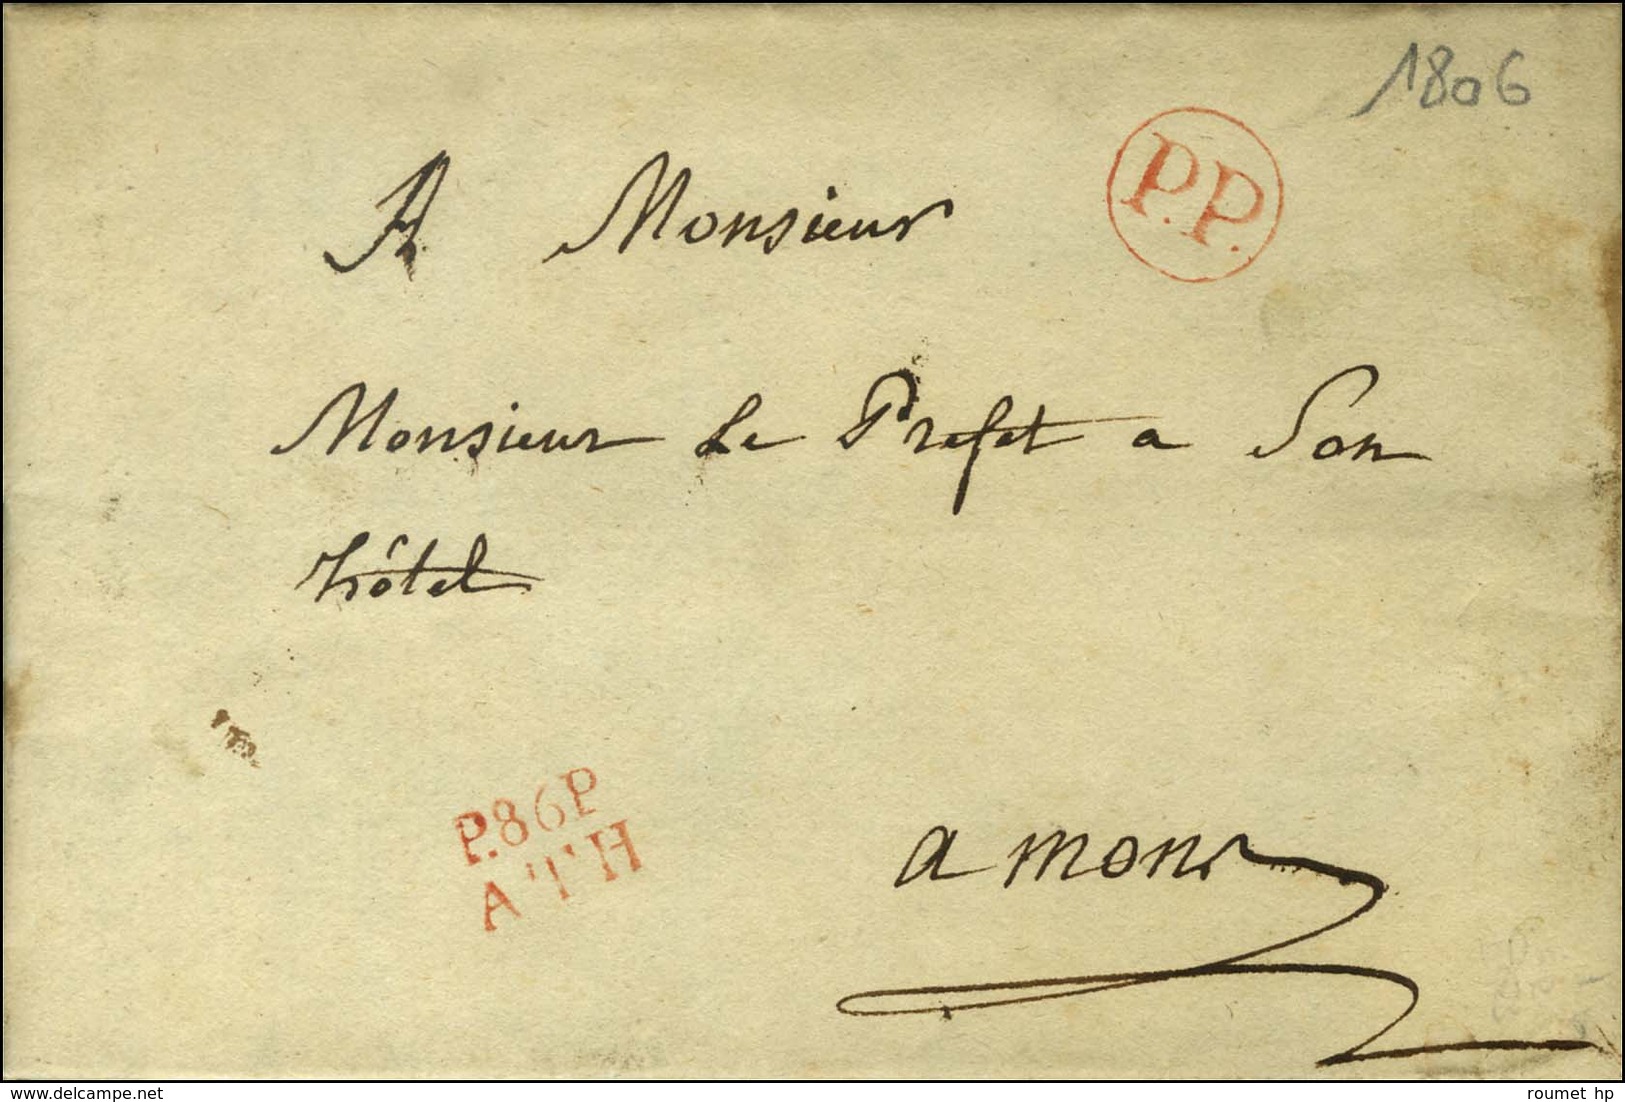 1806
P.P.
A Monsieur
Monsieur Le Prefet a Son
hôtel
P.86P
ATH
a mons
roumet hp